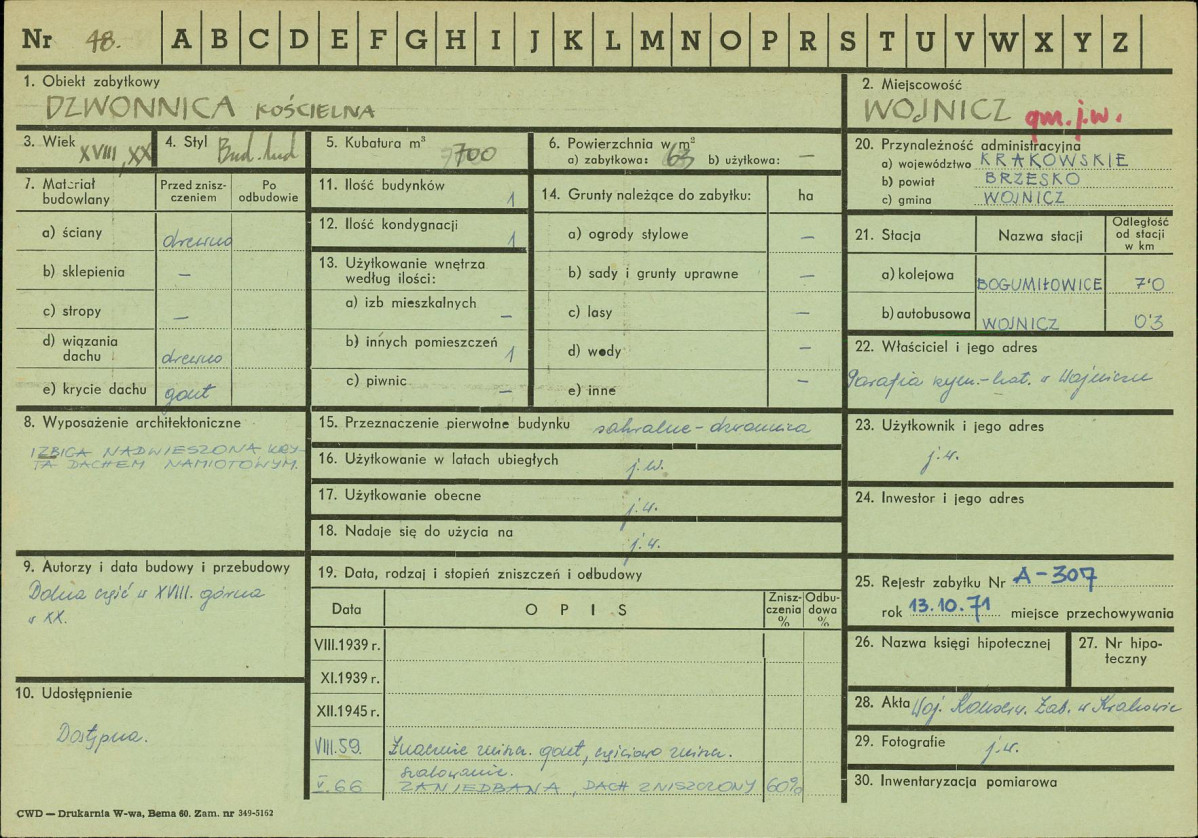 Nr 48. A B C D E F G H I J K L M N O P R S T U V W X Y Z
1. Obiekt zabytkowy
DZWONNICA KOŚCIELNA
2. Miejscowość
WOJNICZ gm. j.w.
3. Wiek XVIII, XX
4. Styl Bud. lud
5. Kubatura m³ 700
6. Powierzchnia w m²
a) zabytkowa: 63 b) użytkowa: —
7. Materiał budowlany
Przed zniszczeniem
Po odbudowie
a) ściany drewno
b) sklepienia —
c) stropy —
d) wiązania dachu drewno
e) krycie dachu gont
8. Wyposażenie architektoniczne
IZBICA NADWIESZONA KRY-
TA DACHEM NAMIOTOWYM.
9. Autorzy i data budowy i przebudowy
Dolna część w XVIII. górna
w XX.
10. Udostępnienie
Dostępna.
11. Ilość budynków 1
12. Ilość kondygnacji 1
13. Użytkowanie wnętrza
według ilości:
a) izb mieszkalnych —
b) innych pomieszczeń 1
c) piwnic —
14. Grunty należące do zabytku: ha
a) ogrody stylowe —
b) sady i grunty uprawne —
c) lasy —
d) wody —
e) inne —
15. Przeznaczenie pierwotne budynku sakralne - dzwonnica
16. Użytkowanie w latach ubiegłych j.w.
17. Użytkowanie obecne j.w.
18. Nadaje się do użycia na j.w.
19. Data, rodzaj i stopień zniszczeń i odbudowy
Data OPIS Zniszczenia % Odbudowa %
VIII.1939 r.
XI.1939 r.
XII.1945 r.
VIII.59. Znacznie zniszcz. gont, częściowo zniszcz.
szalowanie.
V.66 ZANIEDBANA, DACH ZNISZCZONY 60%
20. Przynależność administracyjna
a) województwo KRAKOWSKIE
b) powiat BRZESKO
c) gmina WOJNICZ
21. Stacja Nazwa stacji Odległość od stacji w km
a) kolejowa BOGUMIŁOWICE 7'0
b) autobusowa WOJNICZ 0'3
22. Właściciel i jego adres
Parafia rzym.-kat. w Wojniczu
23. Użytkownik i jego adres
j.w.
24. Inwestor i jego adres
25. Rejestr zabytku Nr A-307
rok 13.10.71 miejsce przechowywania
26. Nazwa księgi hipotecznej
27. Nr hipo-
teczny
28. Akta Woj. Konserw. Zab. w Krakowie
29. Fotografie j.w.
30. Inwentaryzacja pomiarowa
CWD — Drukarnia W-wa, Bema 60. Zam. nr 349-5162